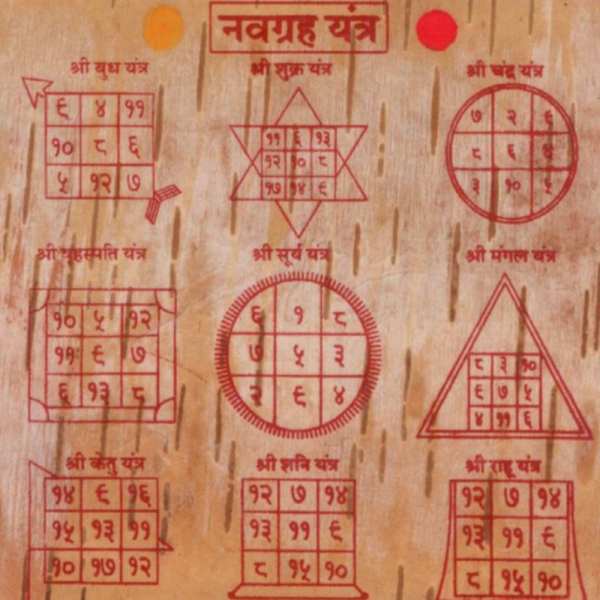 नवग्रह यंत्र
श्री बुध यंत्र
९ ४ ११
१० ८ ६
५ १२ ७
श्री शुक्र यंत्र
११ ६ १३
१२ १० ८
१७ १४ ९
श्री चंद्र यंत्र
७ २
८ ६
३ १० ५
श्री बृहस्पति यंत्र
१० ५ १२
११ ९ ७
६ १३ ८
श्री सूर्य यंत्र
६ १ ८
७ ५ ३
२ ९ ४
श्री मंगल यंत्र
८ ३ १०
९ ७ ५
४ ११ ६
श्री केतु यंत्र
१४ ९ १६
१५ १३ ११
१० १७ १२
श्री शनि यंत्र
१२ ७ १४
१३ ११ ९
८ १५ १०
श्री राहू यंत्र
१२ ७ १४
१३ ११ ९
८ १५ १०